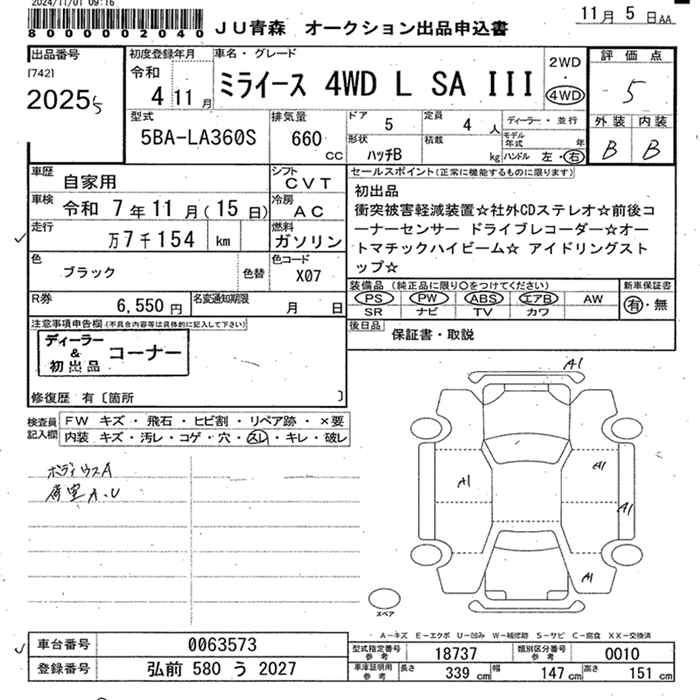 2024/11/01 09:16
8000002040
JU青森 オークション出品申込書
11月 5日AA
出品番号
[742]
20255
初度登録年月
令和
4 11月
車名・グレード
ミライース 4WD L SA III
2WD
・
4WD
評価点
5
型式
5BA-LA360S
排気量
660
CC
ドア
5
定員
4 人
ディーラー・並行
形状
ハッチB
積載
kg
モデル年式 年
ハンドル 左・右
外装 内装
B B
車歴
自家用
シフト
CVT
車検
令和 7年11月(15日)
冷房
AC
走行
万7千154 km
燃料
ガソリン
色
ブラック
色替
色コード
X07
セールスポイント(正常に機能するものに限ります)
初出品
衝突被害軽減装置☆社外CDステレオ☆前後コ
ーナーセンサー ドライブレコーダー☆オー
トマチックハイビーム☆ アイドリングスト
ップ☆
装備品 (純正品に限り○をつけてください)
PS PW ABS エアB AW
SR ナビ TV カワ
新車保証書
有・無
R券
6,550 円
名変通知期限
月 日
後日品
保証書・取説
注意事項申告欄(不具合内容等は具体的に記入して下さい)
ディーラー
&
初出品
コーナー
修復歴 有〔箇所 〕
検査員
記入欄
FW キズ・飛石・ヒビ割・リペア跡・×要
内装 キズ・汚レ・コゲ・穴・スレ・キレ・破レ
ボディウスA
荷室A.U
A1
A1
A1
A1
A1
スペア
A-キズ E-エクボ U-凹み W-補修跡 S-サビ C-腐食 XX-交換済
車台番号
0063573
登録番号
弘前 580 う 2027
型式指定番号
参考
18737
類別区分番号
参考
0010
車庫証明用
参考
長さ 339 cm 幅 147 cm 高さ 151 cm